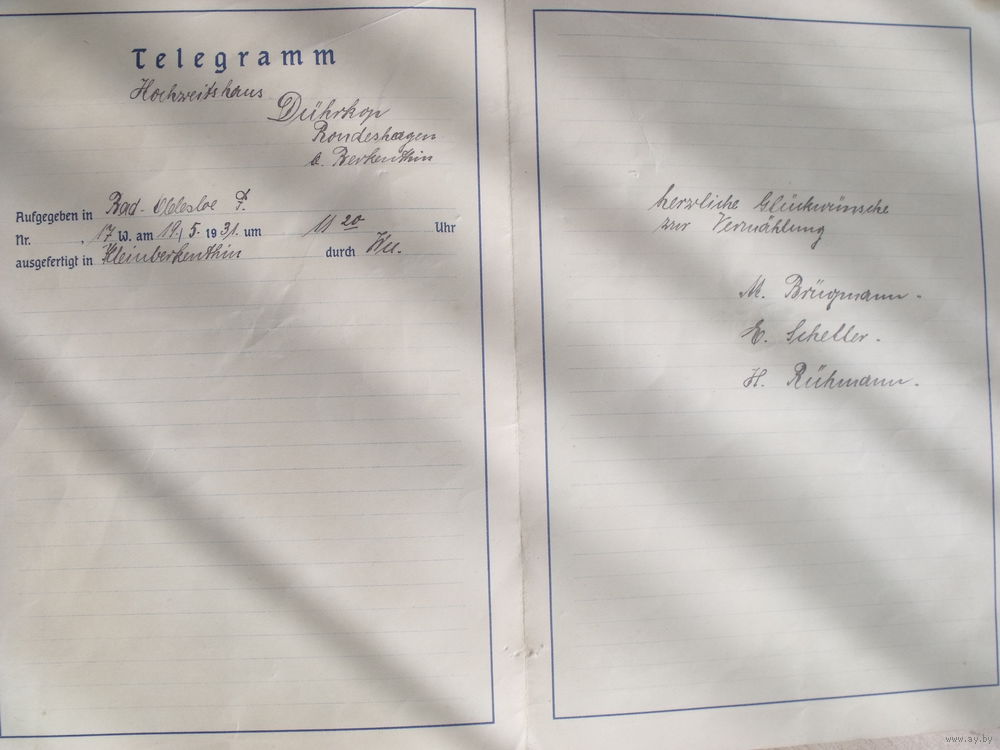 Telegramm
Hochzeitshaus
Dührkop
Rondeshagen
b. Berkenthin
Aufgegeben in Bad-Oldesloe F.
Nr. , 17 W. am 19./5. 1931. um 11 20 Uhr
ausgefertigt in Kleinberkenthin durch Wu.
herzliche Glückwünsche
zur Vermählung
M. Brügmann.
E. Scheller.
H. Rühmann.
www.ay.by